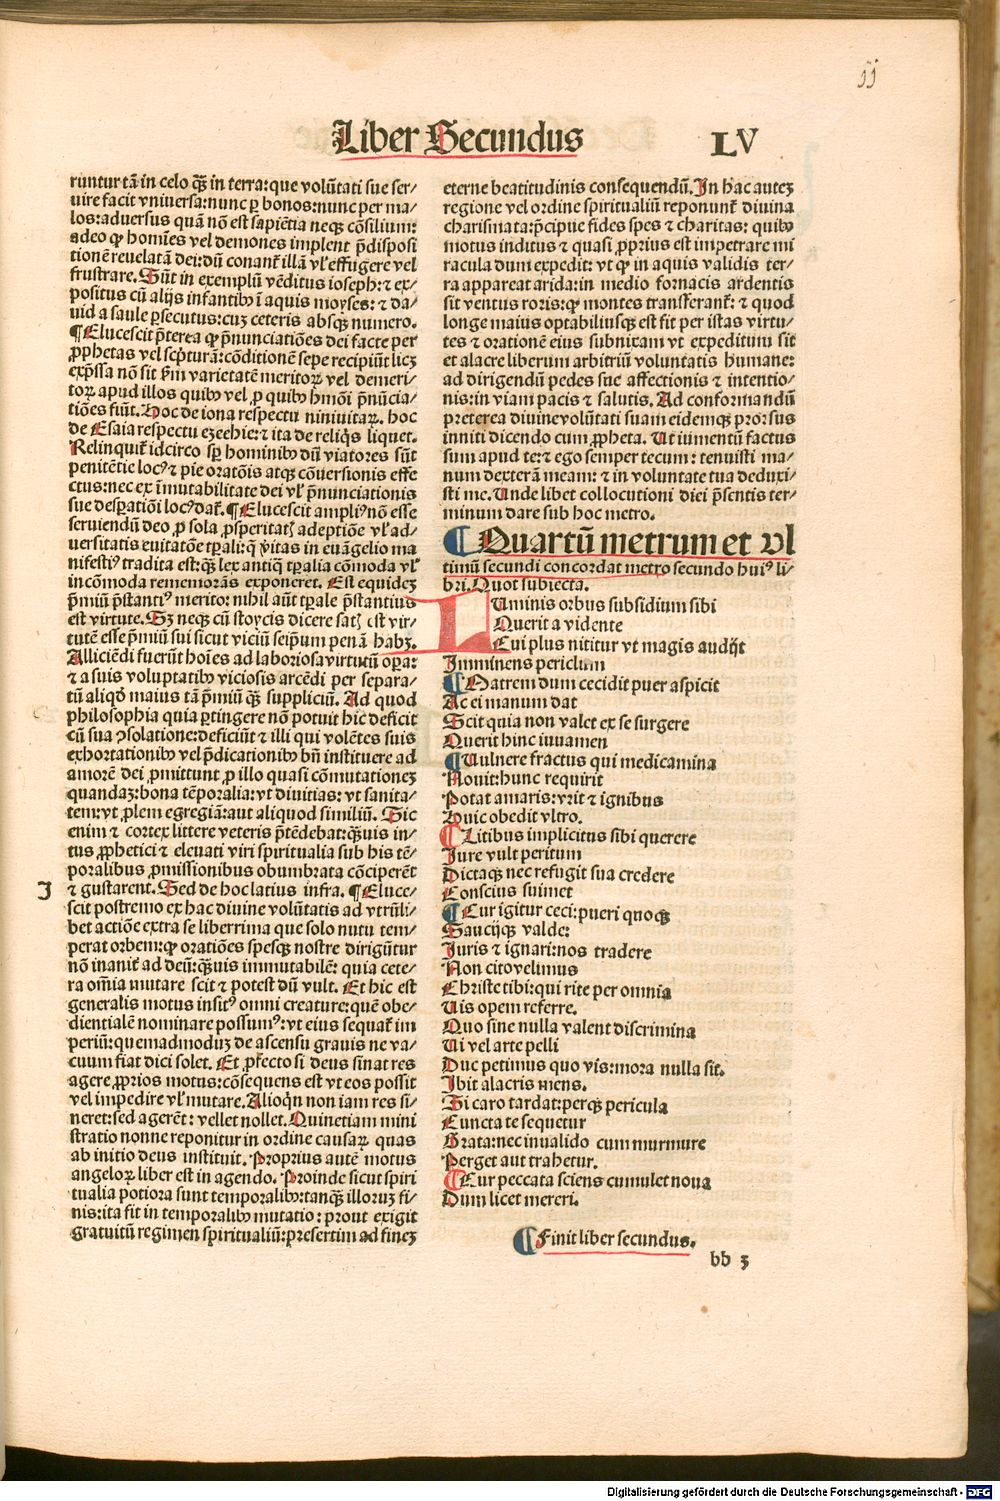 jj
Liber Secundus
LV
runtur tā in celo q̄ꝫ in terra: que volūtati sue ser/
uire facit vniuersa: nunc ꝑ bonos: nunc per ma/
los: aduersus quā nō est sapiētia neqꝫ cōsilium:
adeo ꝙ homīes vel demones implent p̄disposi
tionē reuelatā dei: dū conant᷑ illā vl᷑ effugere vel
frustrare. Sūt in exemplū vēditus ioseph: ⁊ ex/
positus cū alijs infantibꝰ ī aquis moyses: ⁊ da/
uid a saule ꝑsecutus: cuꝫ ceteris absqꝫ numero.
¶ Elucescit p̄terea ꝙ p̄nunciatiōes dei facte per
ꝓphetas vel scp̄turā: cōditionē sepe recipiūt licꝫ
exp̄ssa nō sit ẜm varietatē meritoꝝ vel demeri/
toꝝ apud illos quibꝰ vel ꝓ quibꝰ hmōi p̄nūcia/
tiōes fiūt. Hoc de iona respectu niniuitaꝝ. hoc
de Esaia respectu ezechie: ⁊ ita de reliq̄s liquet.
Relinquit᷑ idcirco sp̄ hominibꝰ dū viatores sūt
penitētie locꝰ ⁊ pie oratōis atqꝫ cōuersionis effe
ctus: nec ex īmutabilitate dei vl᷑ p̄nunciationis
sue desꝑatiōi locꝰ dat᷑. ¶ Elucescit ampliꝰ nō esse
seruiendū deo ꝓ sola ꝓsperitatꝭ adeptiōe vl᷑ ad/
uersitatis euitatōe tꝑali: q̄ v̄itas in euāgelio ma
nifestiꝰ tradita est: q̄ꝫ lex antiq̄ tꝑalia cōmoda vl᷑
incōmoda rememorās exponeret. Est equideꝫ
p̄miū p̄stantiꝰ merito: nihil aūt tꝑale p̄stantius
est virtute. Sꝫ neqꝫ cū stoycis dicere satꝭ est vir/
tutē esse p̄miū sui sicut viciū seip̄um penā habꝫ.
Alliciēdi fuerūt hoīes ad laboriosa virtutū oꝑa:
⁊ a suis voluptatibꝰ viciosis arcēdi per separa/
tū aliqd̄ maius tā p̄miū q̄ꝫ suppliciū. Ad quod
philosophia quia ꝑtingere nō potuit hic deficit
cū sua ꝯsolatione: deficiūt ⁊ illi qui volētes suis
exhortationibꝰ vel p̄dicationibꝰ bn̄ instituere ad
amorē dei ꝓmittunt ꝓ illo quasi cōmutationeꝫ
quandaꝫ: bona tēporalia: vt diuitias: vt sanita/
tem: vt ꝓlem egregiā: aut aliquod similiū. Sic
enim ⁊ cortex littere veteris p̄tēdebat: q̄ꝫuis in/
tus ꝓphetici ⁊ eleuati viri spiritualia sub his tē/
poralibus ꝓmissionibus obumbrata cōciperēt
J
⁊ gustarent. Sed de hoc latius infra. ¶ Eluce/
scit postremo ex hac diuine volūtatis ad vtrūli/
bet actiōe extra se liberrima que solo nutu tem/
perat orbem: ꝙ oratiōes spesqꝫ nostre dirigūtur
nō inanit᷑ ad deū: q̄ꝫuis immutabilē: quia cete/
ra om̄ia mutare scit ⁊ potest dū vult. Et hic est
generalis motus insitꝰ omni creature: quē obe/
dientialē nominare possumꝰ: vt eius sequat᷑ im
periū: quemadmoduꝫ de ascensu grauis ne va/
cuum fiat dici solet. Et ꝓfecto si deus sinat res
agere ꝓprios motus: cōsequens est vt eos possit
vel impedire vl᷑ mutare. Alioq̄n non iam res si/
neret: sed agerēt: vellet nollet. Quinetiam mini
stratio nonne reponitur in ordine causaꝝ quas
ab initio deus instituit. Proprius autē motus
angeloꝝ liber est in agendo. Proinde sicut spiri
tualia potiora sunt temporalibꝰ: tanq̄ꝫ illoruꝫ fi/
nis: ita fit in temporalibꝰ mutatio: prout exigit
gratuitū regimen spiritualiū: presertim ad fineꝫ
eterne beatitudinis consequendū. In hac auteꝫ
regione vel ordine spiritualiū reponunt᷑ diuina
charismata: p̄cipue fides spes ⁊ charitas: quibꝰ
motus inditus ⁊ quasi ꝓprius est impetrare mi
racula dum expedit: vt ꝙ in aquis validis ter/
ra appareat arida: in medio fornacis ardentis
sit ventus roris: ꝙ montes transferant᷑: ⁊ quod
longe maius optabiliusqꝫ est fit per istas virtu/
tes ⁊ orationē eius subnixam vt expeditum sit
et alacre liberum arbitriū voluntatis humane:
ad dirigendū pedes sue affectionis ⁊ intentio/
nis: in viam pacis ⁊ salutis. Ad conformandū
preterea diuine volūtati suam eidemqꝫ prorsus
inniti dicendo cum ꝓpheta. Ut iumentū factus
sum apud te: ⁊ ego semper tecum: tenuisti ma/
num dexterā meam: ⁊ in voluntate tua deduxi/
sti me. Unde libet collocutioni diei p̄sentis ter/
minum dare sub hoc metro.
¶ Quartū metrum et vl
timū secundi concordat metro secundo huiꝰ li/
bri. Quot subiecta.
Luminis orbus subsidium sibi
Querit a vidente
Cui plus nititur vt magis audijt
Imminens periclum
¶ Matrem dum cecidit puer aspicit
Ac ei manum dat
Scit quia non valet ex se surgere
Querit hinc iuuamen
¶ Uulnere fractus qui medicamina
Nouit: hunc requirit
Potat amaris: vrit ⁊ ignibus
Huic obedit vltro.
¶ Litibus implicitus sibi querere
Jure vult peritum
Dictaqꝫ nec refugit sua credere
Conscius suimet
¶ Cur igitur ceci: pueri quoqꝫ
Saucijqꝫ valde:
Juris ⁊ ignari: nos tradere
Non cito velimus
Christe tibi: qui rite per omnia
Uis opem referre.
Quo sine nulla valent discrimina
Ui vel arte pelli
Duc petimus quo vis: mora nulla sit.
Ibit alacris mens.
Si caro tardat: perqꝫ pericula
Cuncta te sequetur
Grata: nec inualido cum murmure
Perget aut trahetur.
¶ Cur peccata sciens cumulet noua
Dum licet mereri.
¶ Finit liber secundus.
bb 3
Digitalisierung gefördert durch die Deutsche Forschungsgemeinschaft - DFG